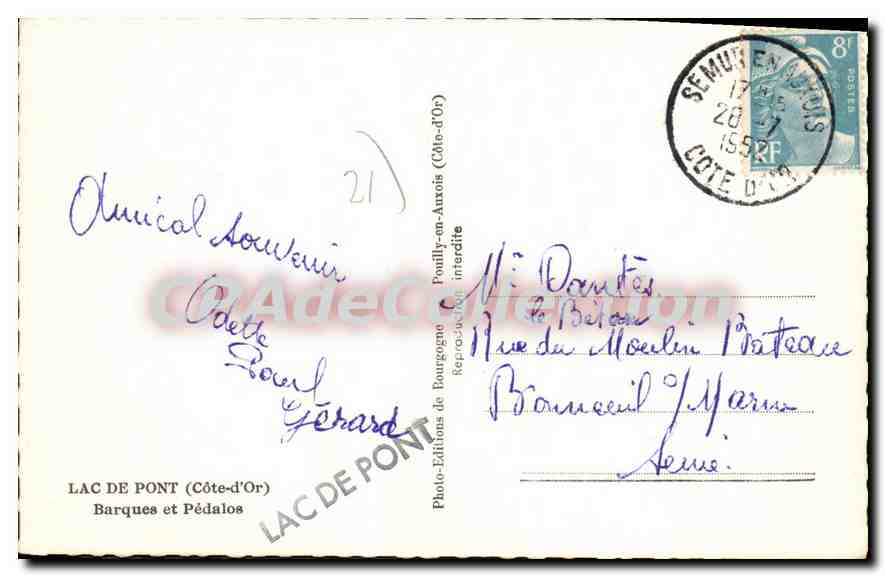 SEMUR EN AUXOIS
17 H 15
28 -7
1952
COTE D'OR
8F
POSTES
RF
21
Amical souvenir
Odette
Paul
Gérard
LAC DE PONT (Côte-d'Or)
Barques et Pédalos
LAC DE PONT
Photo-Editions de Bourgogne Pouilly-en-Auxois (Côte-d'Or)
Reproduction interdite
Mr Dantès
le Béton
Rue du Moulin Bateau
Bonneuil s/Marne
Seine.
CPAdeCollection